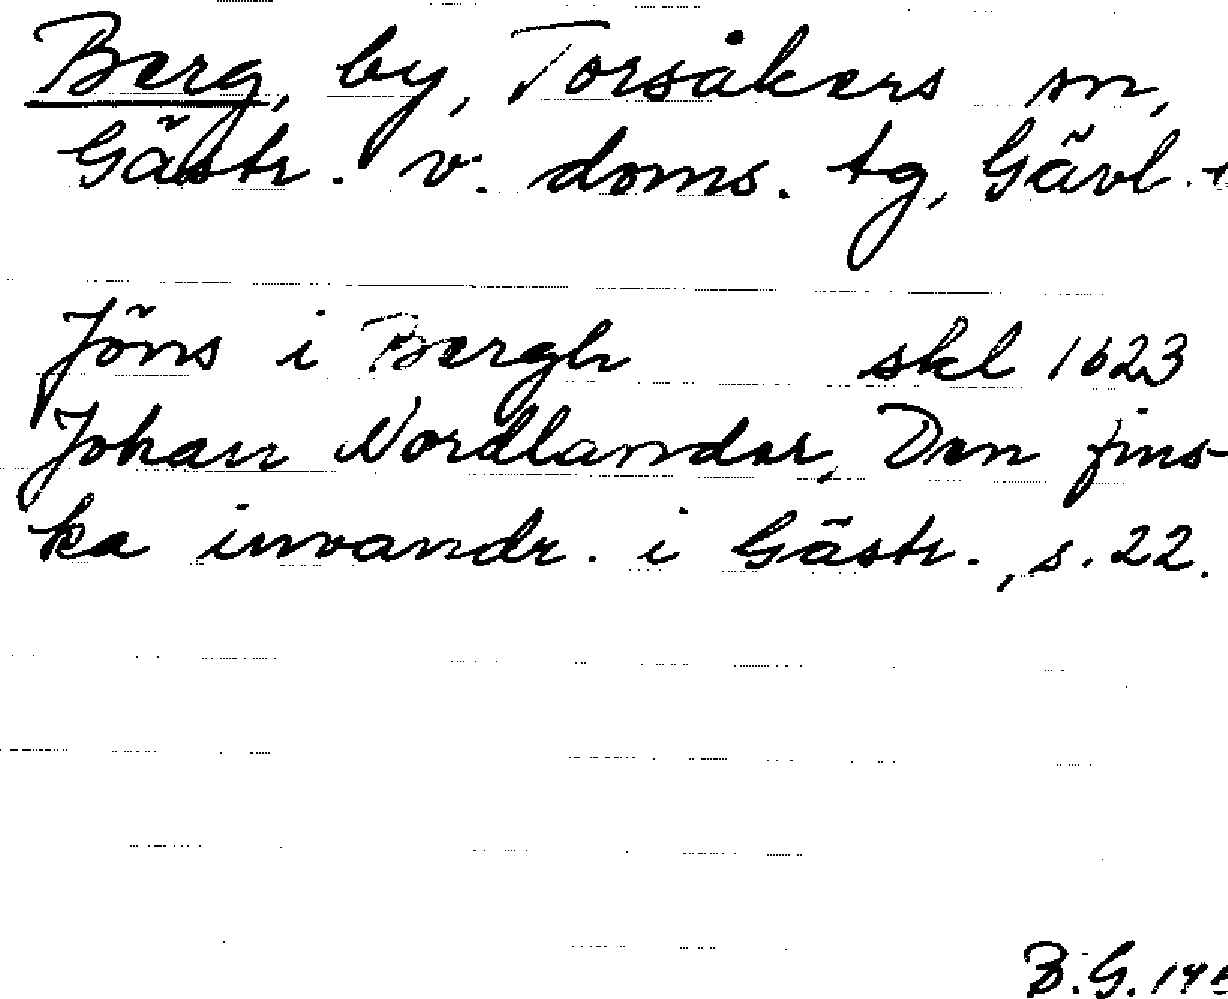 Berg, by, Torsåkers sn,
Gästr. v. doms. tg, Gävl.
Jöns i Bergh skl 1623
Johan Nordlander, Den fins-
ka invandr. i Gästr., s. 22.
B.G.